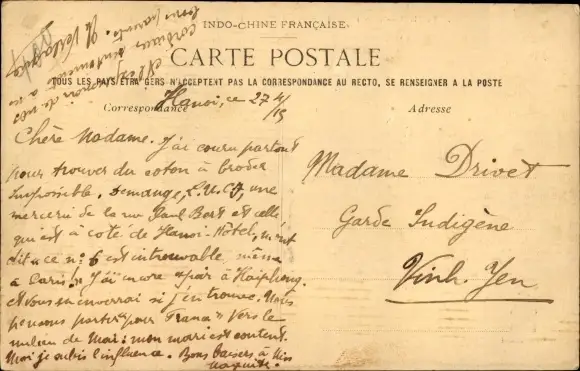 INDO-CHINE FRANÇAISE
CARTE POSTALE
TOUS LES PAYS ÉTRANGERS N'ACCEPTENT PAS LA CORRESPONDANCE AU RECTO, SE RENSEIGNER A LA POSTE
Correspondance
Adresse
Hanoi, ce 27 4/15
Chère Madame. J'ai couru partout
pour trouver du coton à broder
Impossible. Demange, L.U.C.I, une
mercerie de la rue Paul Bert et celle
qui est à côté de Hanoi-Hôtel, m'ont
dit que ce n: 6 est introuvable, même
à Paris! J'ai encore espoir à Haiphong.
et vous en enverrai si j'en trouve. Nous
pensons partir pour France vers le
milieu de Mai: mon mari est content.
Moi je subis l'influence. Bons baisers à Miss
Madame Drivet
Garde Indigène
Vinh-Yen